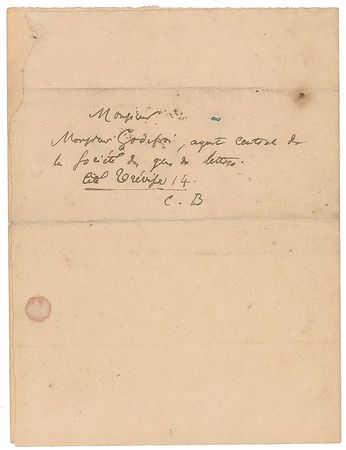 Monsieur
Monsieur Godefroi, agent central de
la Société des gens de lettres.
Cité Trévise 14.
C. B